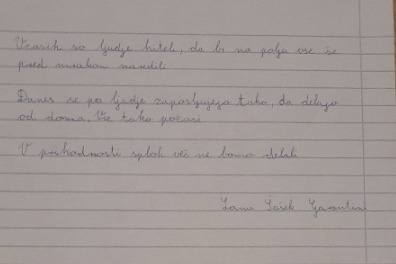 Včasih so ljudje hiteli, da bi na polju vse še
pred mrakom naredili.
Danes se pa ljudje zaposlujejo tako, da delajo
od doma. Vse tako počasi.
V prihodnosti sploh več ne bomo delali.